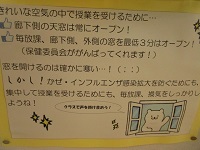 きれいな空気の中で授業を受けるために…
廊下側の天窓は常にオープン！
毎放課、廊下側、外側の窓を最低３分はオープン！
（保健委員会ががんばってくれます！）
窓を開けるのは確かに寒い…！（；；）
しかし！かぜ・インフルエンザ感染拡大を防ぐためにも、
集中して授業を受けるためにも、毎放課、換気をしっかりし
ようね！
クラスで声を掛け合おう！